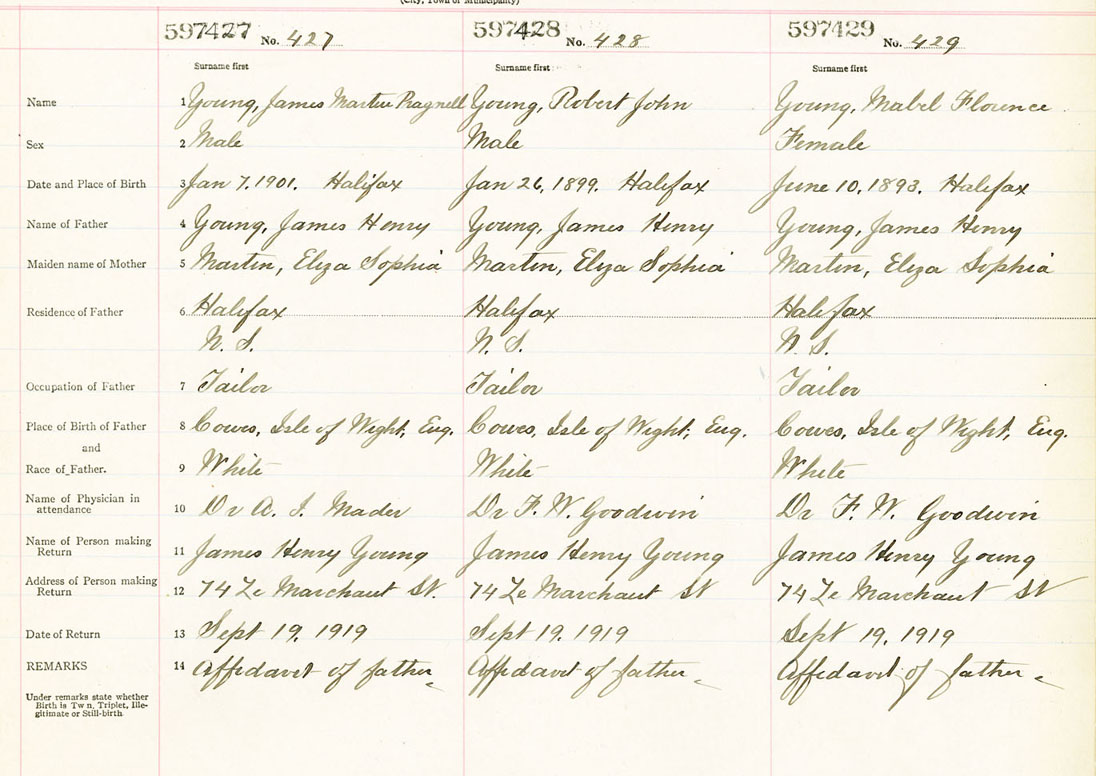 (City, Town or Municipality)
597427 No. 427 597428 No. 428 597429 No. 429
Surname first Surname first Surname first
Name 1 Young, James Martin Pragnell Young, Robert John Young, Mabel Florence
Sex 2 Male Male Female
Date and Place of Birth 3 Jan 7, 1901. Halifax Jan 26, 1899. Halifax June 10, 1893. Halifax
Name of Father 4 Young, James Henry Young, James Henry Young, James Henry
Maiden name of Mother 5 Martin, Eliza Sophia Martin, Eliza Sophia Martin, Eliza Sophia
Residence of Father 6 Halifax Halifax Halifax
N. S. N. S. N. S.
Occupation of Father 7 Tailor Tailor Tailor
Place of Birth of Father 8 Cowes, Isle of Wight, Eng. Cowes, Isle of Wight, Eng. Cowes, Isle of Wight, Eng.
and
Race of Father. 9 White White White
Name of Physician in
attendance 10 Dr A. I. Mader Dr F. W. Goodwin Dr F. W. Goodwin
Name of Person making
Return 11 James Henry Young James Henry Young James Henry Young
Address of Person making
Return 12 74 Le Marchant St. 74 Le Marchant St 74 Le Marchant St
Date of Return 13 Sept 19, 1919 Sept 19, 1919 Sept 19, 1919
REMARKS 14 Affedavit of father Affedavit of father Affedavit of father
Under remarks state whether
Birth is Tw n, Triplet, Ille-
gitimate or Still-birth